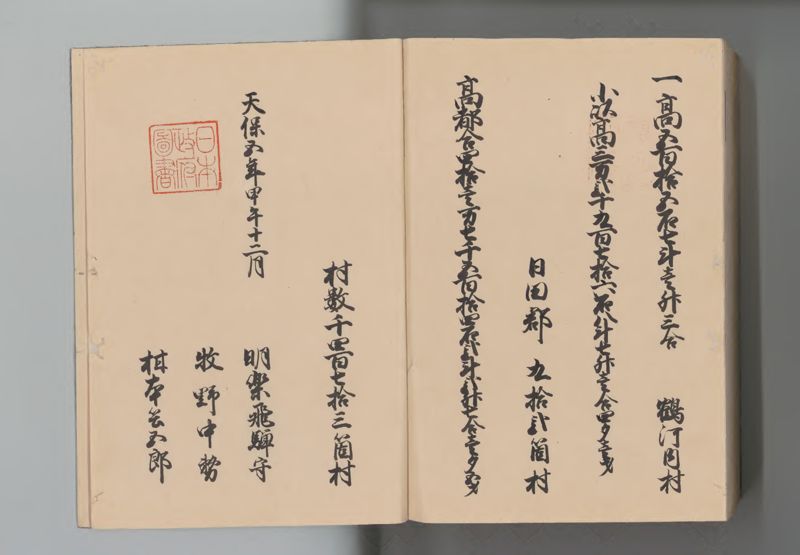 一高五百拾五石七斗壱升三合 鶴河内村
小以高三万弐千九百七拾六石八斗七升壱合四夕壱才
日田郡 九拾弐箇村
高都合四拾壱万七千五百拾四石弐斗
村数千四百七拾三箇村
天保五年甲午十二月
明楽飛騨守
牧野中務
日本
政府
図書